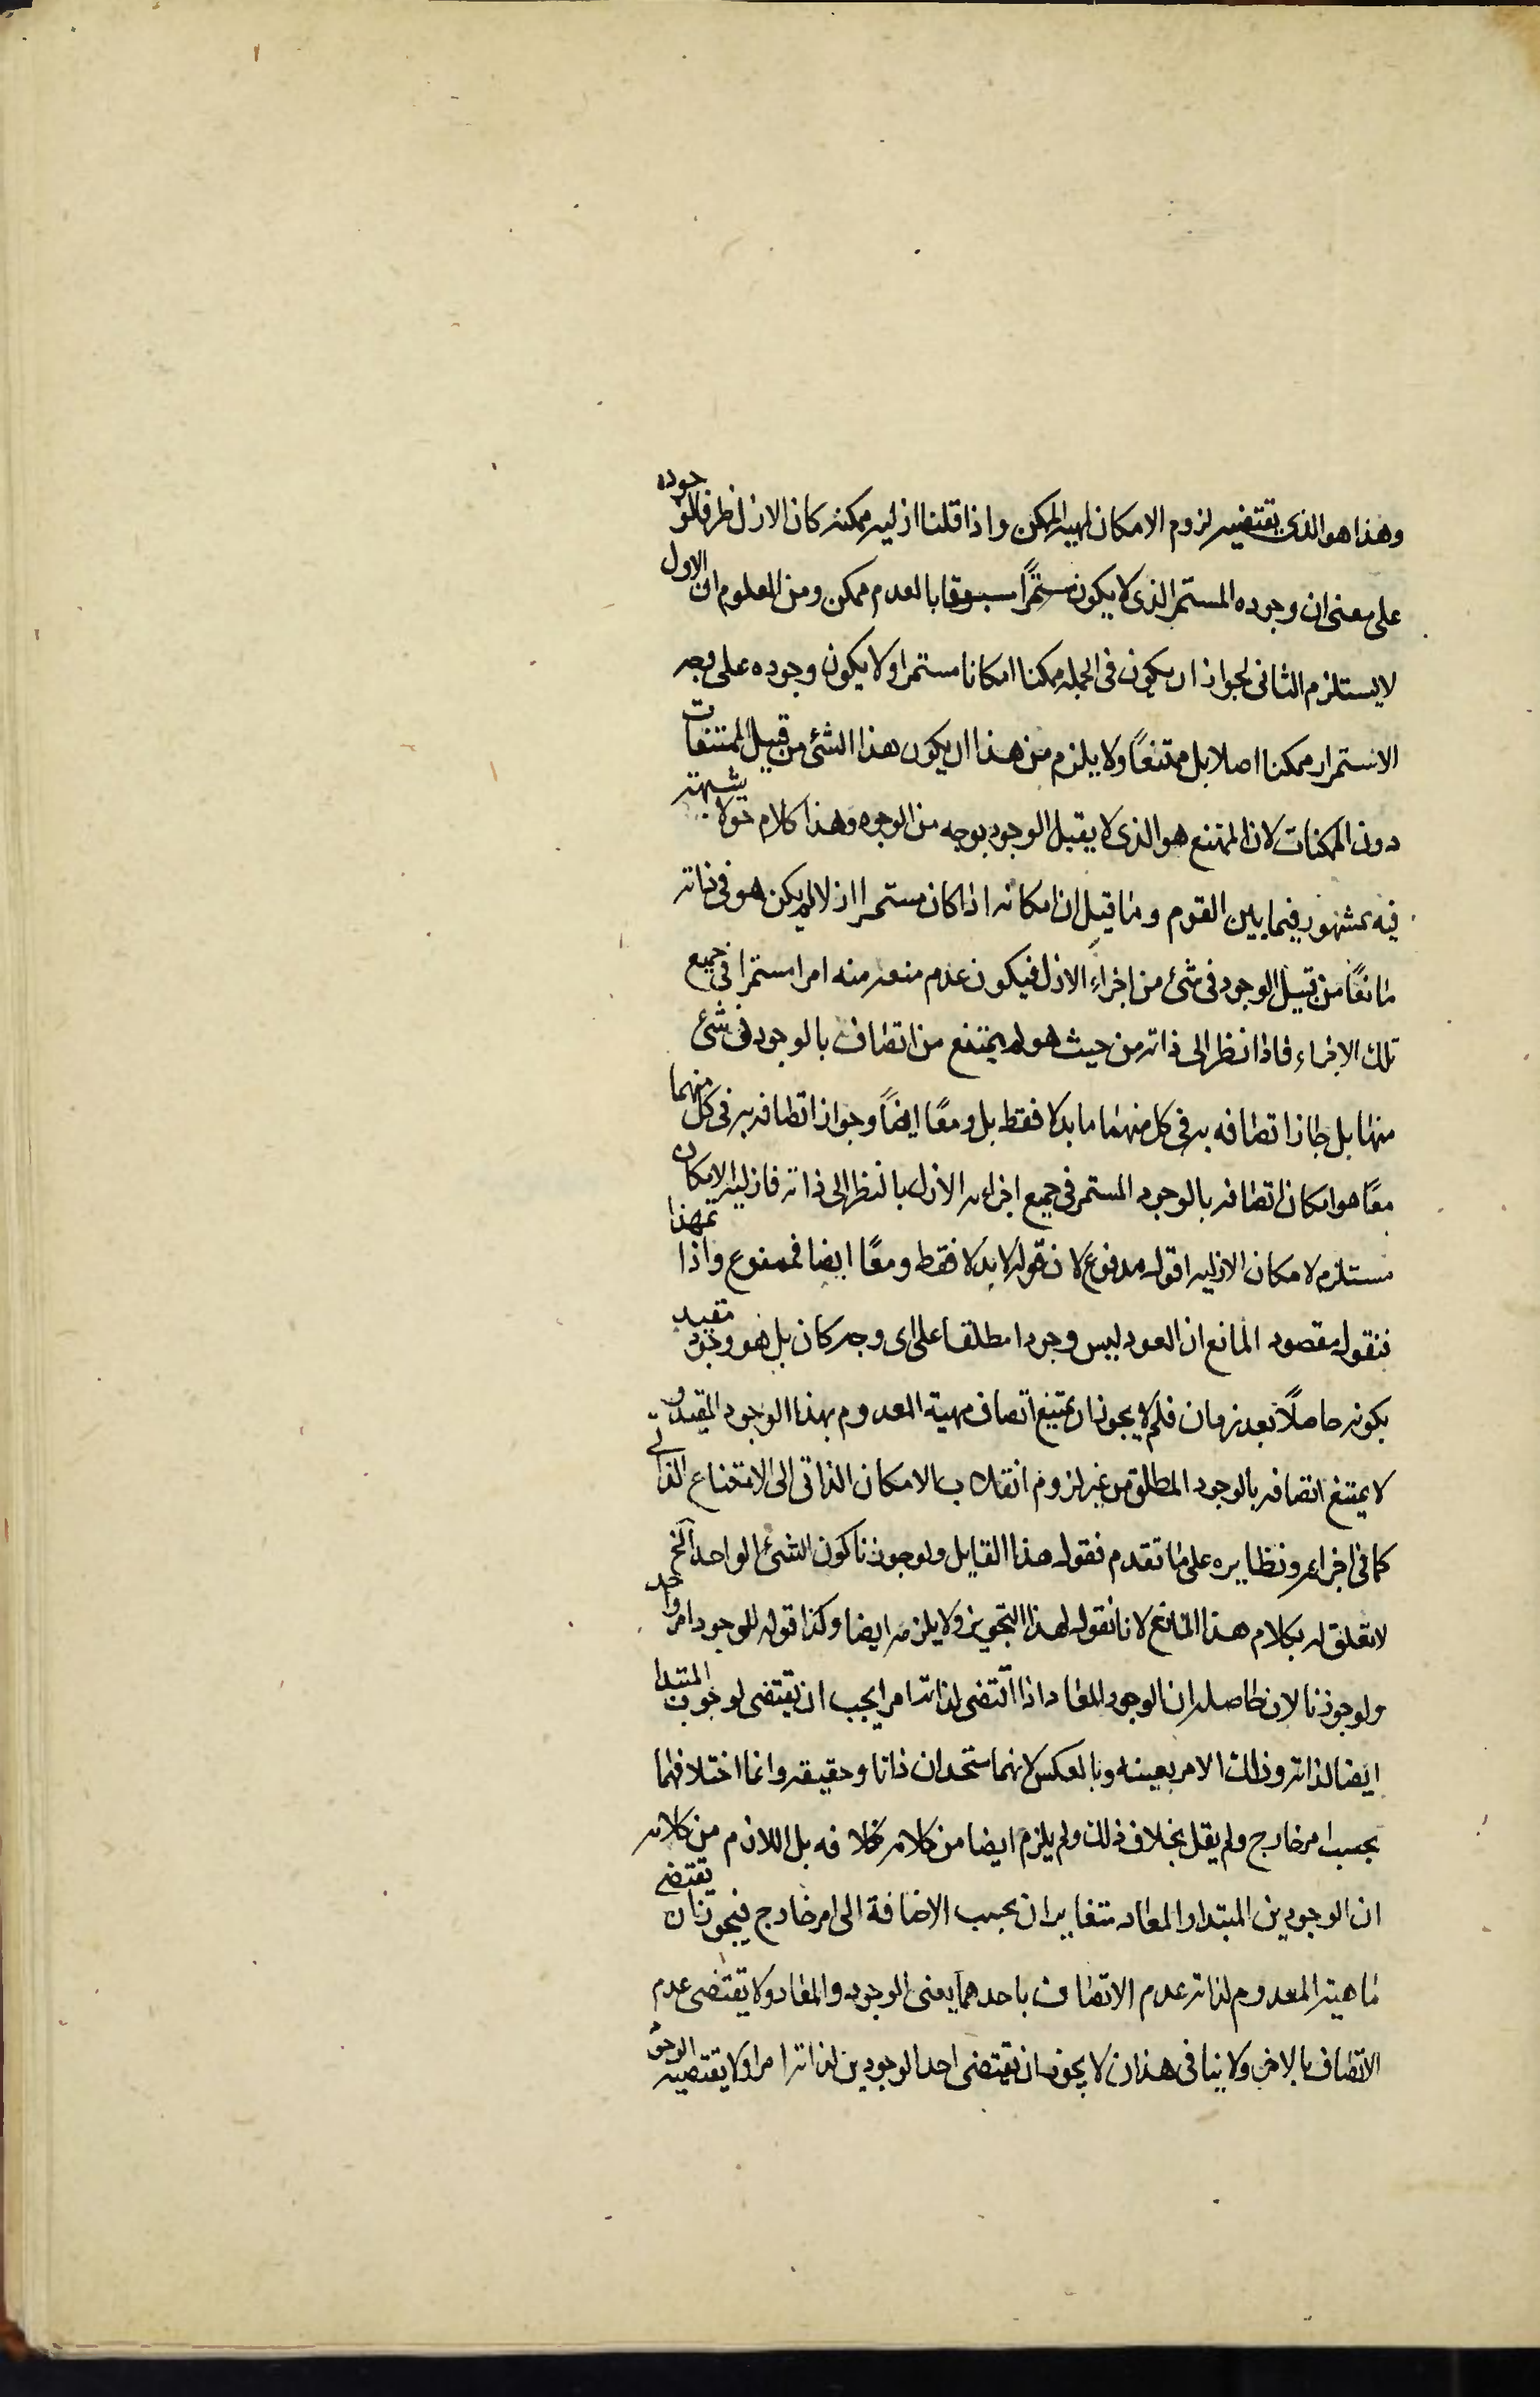 وهذا هو الذى يقتضيه لزوم الامكان لمهيه الممكن واذا قلنا ازليه ممكنه كان الازل ظرفا لوجوده
على معنى ان وجوده المستمر الذى لا يكون مستمرًا مسبوقا بالعدم ممكن ومن المعلوم ان الاول
لا يستلزم الثانى لجواز ان يكون فى الجمله ممكنا امكانا مستمرا ولا يكون وجوده على وجه
الاستمرار ممكنا اصلا بل ممتنعًا ولا يلزم من هذا ان يكون هذا الشئ من قبيل الممتنعات
دون الممكنات لان الممتنع هو الذى لا يقبل الوجود بوجه من الوجوه وهذا كلام حق لا شبهة
فيه مشهور فيما بين القوم وما قيل ان امكانه اذا كان مستمرا ازلا لم يكن هو فى ذاته
مانعًا من قبيل الوجود فى شئ من اجزاء الازل فيكون عدم منعه منه امرا مستمرا فى جميع
تلك الاجزاء فاذا نظر الى ذاته من حيث هو لم يمتنع من اتصاف بالوجود فى شئ
منها بل جاز اتصافه به فى كل منهما ما بدلا فقط بل ومعًا ايضًا وجواز اتصافه به فى كل منهما
معًا هو امكان اتصافه بالوجود المستمر فى جميع اجزاءه الازل بالنظر الى ذاته فازليه الامكان
مستلزمه لامكان الازليه اقول مدفوع لان قوله لا بدلا فقط ومعًا ايضا فممنوع واذا تمهد هذا
فنقول مقصود المانع ان العود ليس وجودا مطلقا على اى وجه كان بل هو وجود مقيد
بكونه حاصلًا بعد زمان فلم لا يجوز ان يمتنع اتصاف مهية المعدوم بهذا الوجود المقيد و
لا يمتنع اتصافه بالوجود المطلق من غير لزوم انقلاب الامكان الذاتى الى الامتناع الذاتى
كما فى اجزاءه ونظايره على ما تقدم فقول هذا القايل ولو جوزنا كون الشئ الواحد الخ
لا تعلق له بكلام هذا المانع لانا نقول لهذا التجويز ولا يلزمه ايضا وكذا قوله للوجود امر واحد
ولو جوزنا لان حاصله ان الوجود المعاد اذا اقتضى لذاته امرا يجب ان يقتضى لوجوب المبتدا
ايضا لذاته وذلك الامر بعينه وبالعكس لانهما متحدان ذاتا وحقيقه وانما اختلافهما
بحسب امر خارج ولم يقل بخلاف ذلك ولم يلزم ايضا من كلامه خلافه بل اللازم من كلامه
ان الوجودين المبتدا والمعاد متغايران بحسب الاضافة الى امر خارج فيجوز ان يقتضى
ماهية المعدوم لذاته عدم الاتصاف باحدهما يعنى الوجود والمعاد ولا تقتضى عدم
الاتصاف بالاخر ولا ينافى هذا ان لا يجوز ان يقتضى احد الوجودين لذاته امرا ولا يقتضيه الوجود